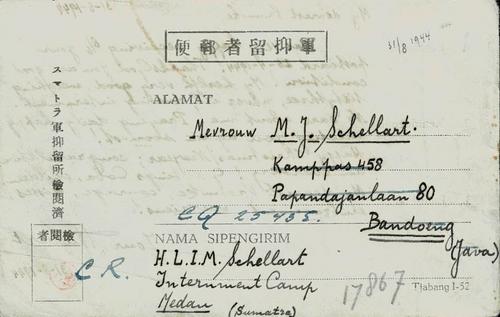 軍抑留者郵便
31/8 1944
スマトラ軍抑留所檢閲濟
ALAMAT
Mevrouw M. J. Schellart.
Kamppas 458
Papandajanlaan 80
Bandoeng
(Java)
CQ 25455.
檢閲者
C.R.
NAMA SIPENGIRIM
H.L.I.M. Schellart
Internment Camp
Medan (Sumatra)
17867
Tjabang I-52